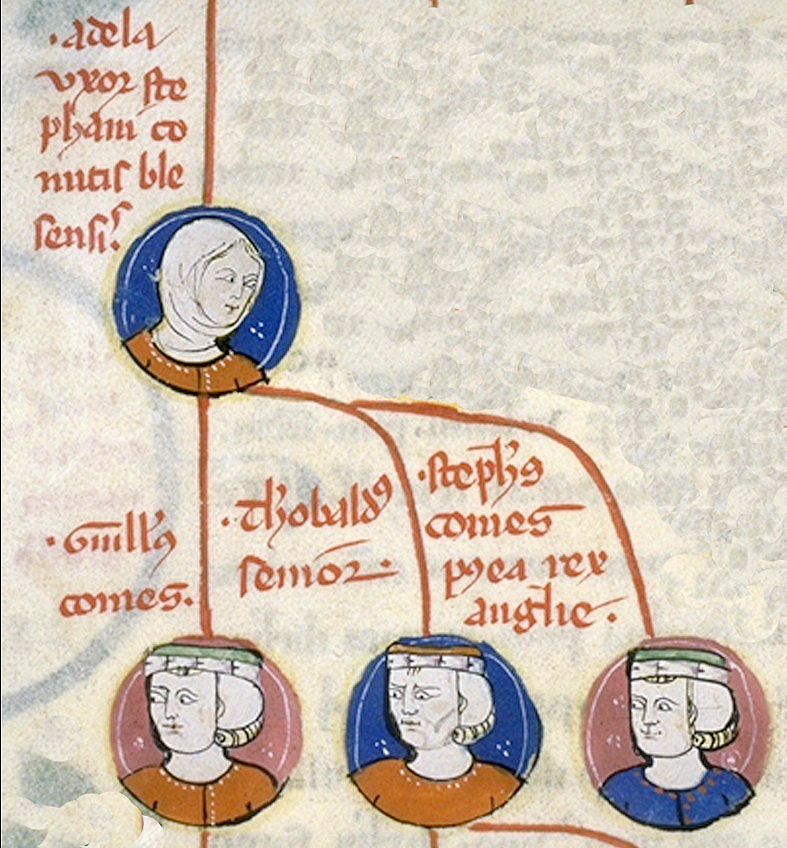 ·adela
vxor ste
phani co
mitis ble
sensis.
·Guillꝰs
comes.
·Thobaldꝰ
senior.
·stephs
comes
p9ea rex
anglie.